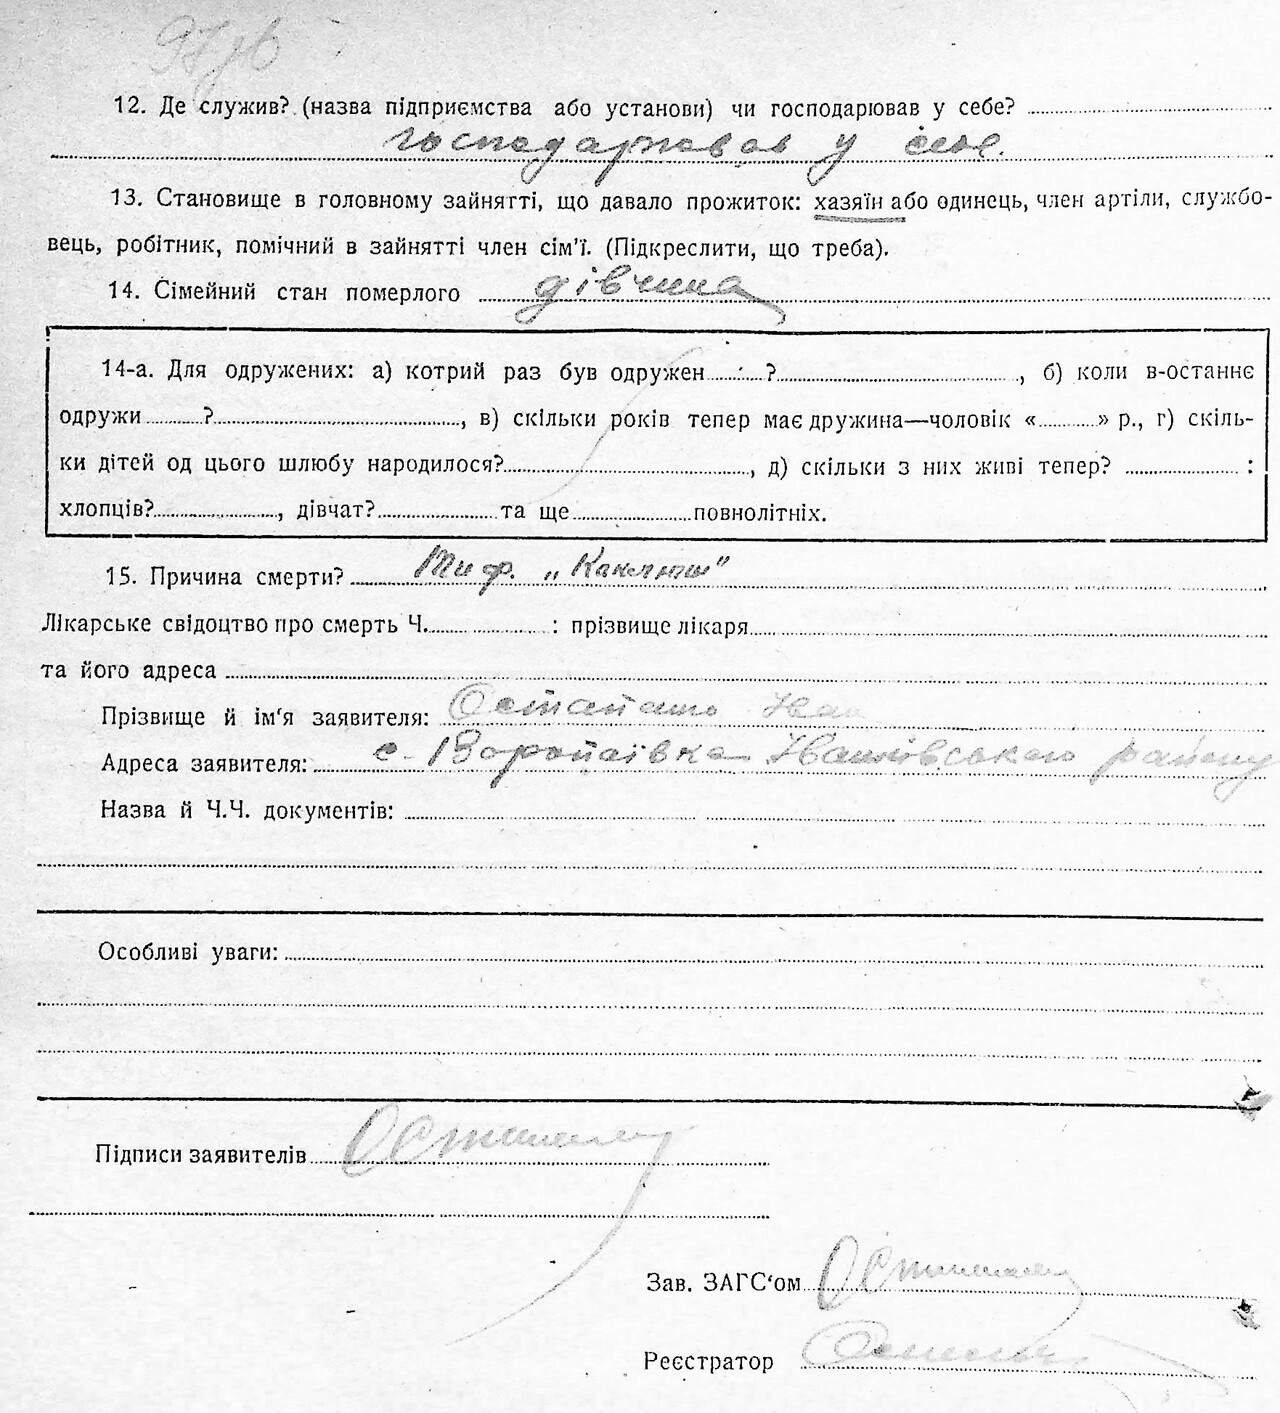 97
12. Де служив? (назва підприємства або установи) чи господарював у себе?
господарював у себе.
13. Становище в головному зайнятті, що давало прожиток: хазяїн або одинець, член артіли, службо-
вець, робітник, помічний в зайнятті член сім'ї. (Підкреслити, що треба).
14. Сімейний стан померлого дівчина
14-а. Для одружених: а) котрий раз був одружен ?, б) коли в-останнє
одружи ?, в) скільки років тепер має дружина—чоловік « » р., г) скіль-
ки дітей од цього шлюбу народилося?, д) скільки з них живі тепер? :
хлопців?, дівчат? та ще повнолітніх.
15. Причина смерти? Тиф. „Каклюш"
Лікарське свідоцтво про смерть Ч. : прізвище лікаря
та його адреса
Прізвище й ім'я заявителя: Іван
Адреса заявителя: с. Воропаївка Іванківського району
Назва й Ч.Ч. документів:
Особливі уваги:
Підписи заявителів
Зав. ЗАГС'ом
Реєстратор